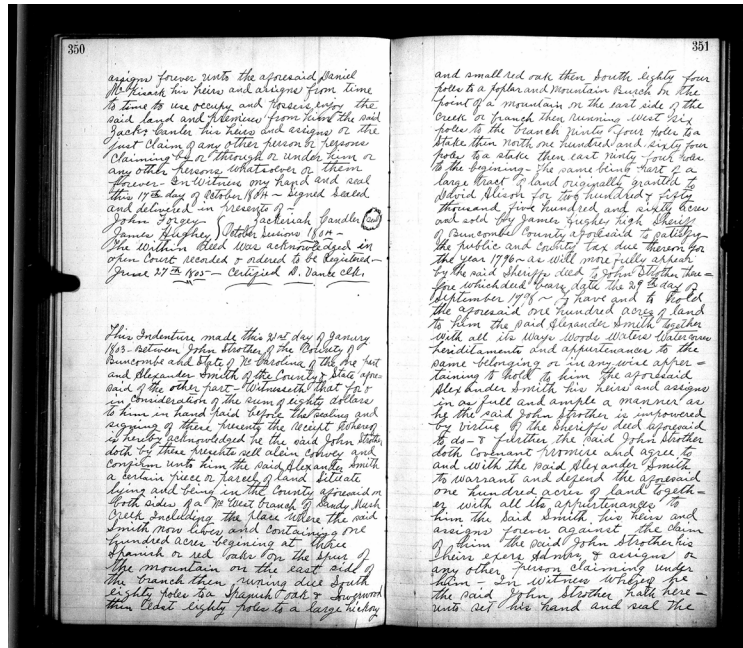 350
assigns forever unto the aforesaid Daniel
McKisack his heirs and assigns from time
to time to use occupy and possess, enjoy the
said land and premises from him the said
Zachr. Candler his heirs and assigns or the
just claim of any other person or persons
claiming by or through or under him or
any other persons whatsoever or them
forever - In Witness my hand and seal
this 17th day of October 1804 - Signed Sealed
and delivered in presents of -
John Forgey Zackeriah Candler Seal
James Hughey October Sessions 1804 -
The Within deed was acknowledged in
open Court recorded & ordered to be Registered -
June 27th 1805 - Certified D. Vance clk.
This Indenture made this 21st day of January
1803 - Between John Strother of the County of
Buncombe and State of No Carolina of the one part
and Alexander Smith of the County & State afore
said of the other part - Witnesseth that for &
in Consideration of the sum of eighty dollars
to him in hand paid before the sealing and
signing of these presents the receipt whereof
is hereby acknowledged he the said John Strother
doth by these presents sell alein convey and
confirm unto him the said Alexander Smith
a certain piece or parcel of land Situate
lying and being in the County aforesaid on
both sides of a No West branch of Sandy Mush
Creek Including the place where the said
Smith now lives and containing one
hundred acres begining at three
Spanish or red oaks on the spur of
the mountain on the east side of
the branch then runing due South
eighty poles to a Spanish oak &
then East eighty poles to a large hickory
351
and small red oak then South eighty four
poles to a poplar and Mountain Burch on the
point of a mountain on the east side of the
Creek or branch then running West Six
poles to the branch Ninty four poles to a
Stake then north one hundred and sixty four
poles to a stake then east ninty-four poles
to the begining - The same being part of a
large tract of land originally granted to
David Alison for two hundred & fifty
thousand five hundred and sixty acres
and sold by James Hughey high Sheriff
of Buncombe County aforesaid to satisfy
the public and County tax due thereon for
the year 1796 - as will more fully appear
by the said Sheriffs deed to John Strother there =
fore which deed bears date the 29th day of
September 1798 - To have and to hold
the aforesaid one hundred acres of land
to him the said Alexander Smith together
with all its Ways Woods Waters Watercourses
heridilaments and appurtenances to the
same belonging or in any wise apper =
taining to hold to him the aforesaid
Alexander Smith his heirs and assigns
in as full and ample a manner as
he the said John Strother is impowered
by virtue of the Sheriffs deed aforesaid
to do - & further the said John Strother
doth Covenant promise and agree to
and with the said Alexander Smith
to warrant and defend the aforesaid
one hundred acres of land togeth =
er with all its appurtenances to
him the Said Smith, his heirs and
assigns forever against the claim
of him the said John Strother his
heirs exers Admrs, & assigns or
any other person claiming under
him - In Witness whereof he
the said John Strother hath here =
unto set his hand and seal the